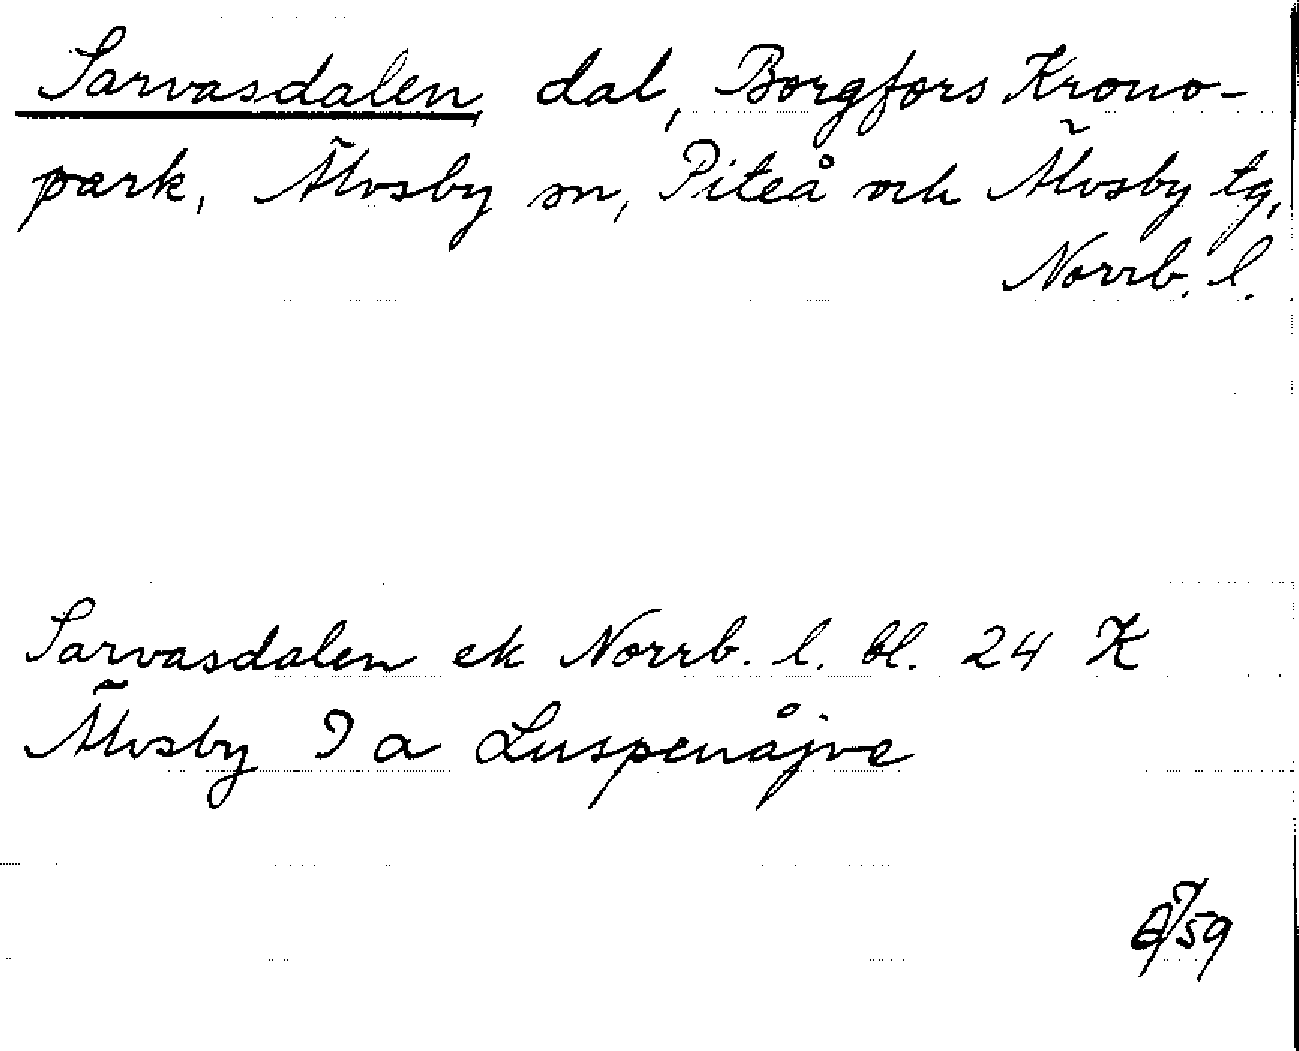 Sarvasdalen dal, Borgfors Krono-
park, Älvsby sn, Piteå och Älvsby tg,
Norrb. l.
Sarvasdalen ek Norrb. l. bl. 24 K
Älvsby 9 a Luspenåjve